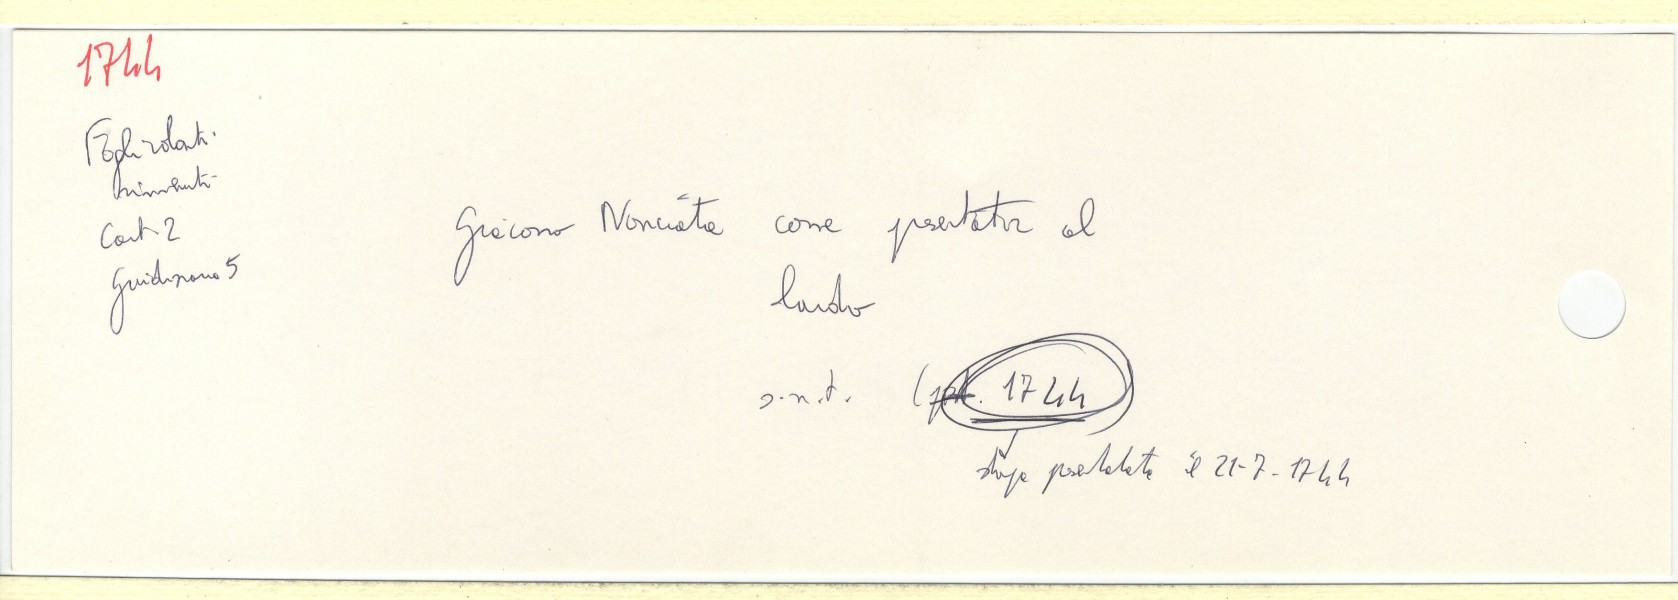 1744
Fogli volanti
rinvenuti
Cart 2
Guidizzano 5
Giacomo Nonciata come presentator al
lardo
s.n.t. (post. 1744
presentata il 21-7-1744